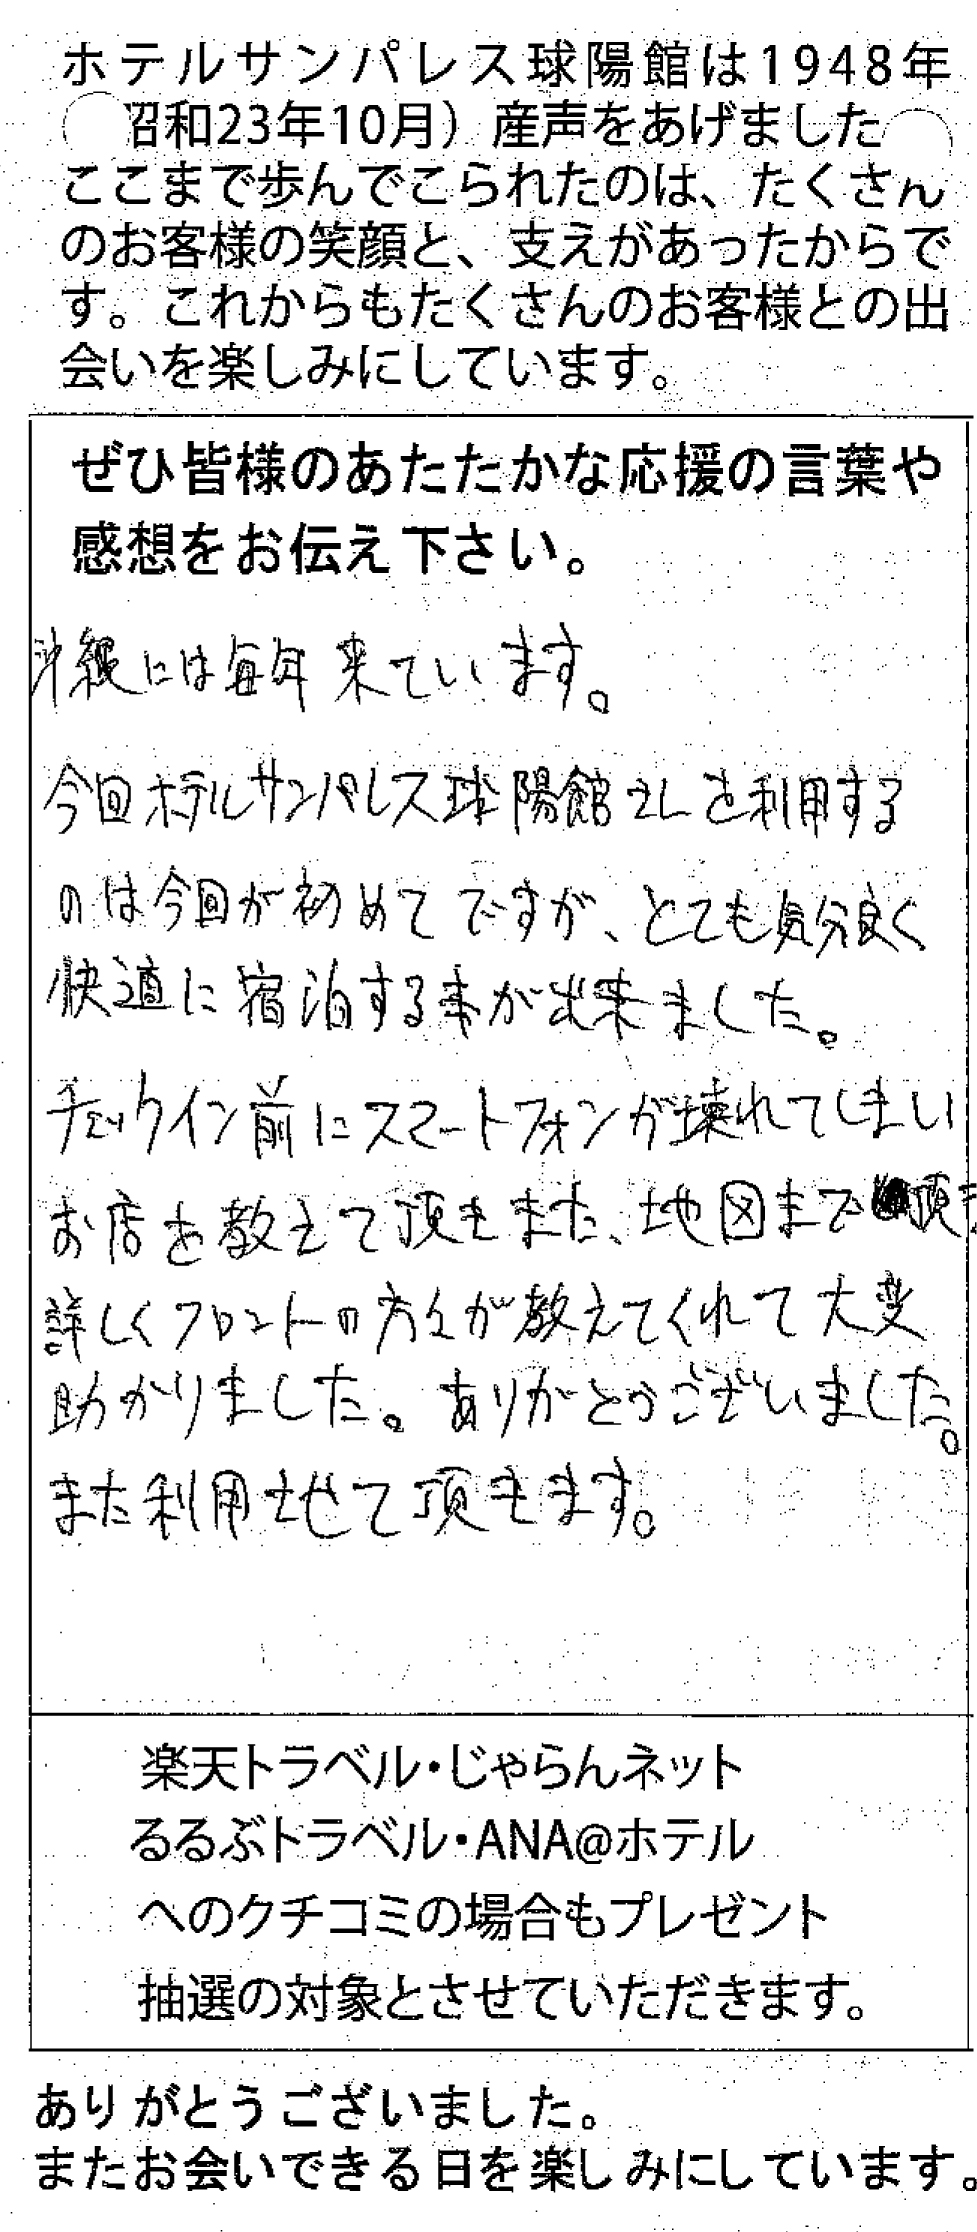 ホテルサンパレス球陽館は1948年
（昭和23年10月）産声をあげました
ここまで歩んでこられたのは、たくさん
のお客様の笑顔と、支えがあったからで
す。これからもたくさんのお客様との出
会いを楽しみにしています。
ぜひ皆様のあたたかな応援の言葉や
感想をお伝え下さい。
沖縄には毎年来ています。
今回ホテルサンパレス球陽館さんを利用する
のは今回が初めてですが、とても気分良く
快適に宿泊する事が出来ました。
チェックイン前にスマートフォンが壊れてしまい
お店を教えて頂きまた、地図まで頂き
詳しくフロントの方々が教えてくれて大変
助かりました。ありがとうございました。
また利用させて頂きます。
楽天トラベル・じゃらんネット
るるぶトラベル・ANA@ホテル
へのクチコミの場合もプレゼント
抽選の対象とさせていただきます。
ありがとうございました。
またお会いできる日を楽しみにしています。